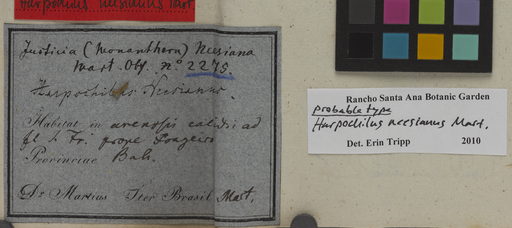 Harpochilus neesianus Mart
Justicia (Monanthera) Neesiana
Mart. Off. nº 2275.
Harpochilus Neesianus.
Habitat in arenosis calidis ad
fl. S. Fr. prope Joazeiro
Provinciae Bah.
Dr. Martius Iter Brasil. Mart.
Rancho Santa Ana Botanic Garden
probable type
Harpochilus neesianus Mart.
Det. Erin Tripp 2010